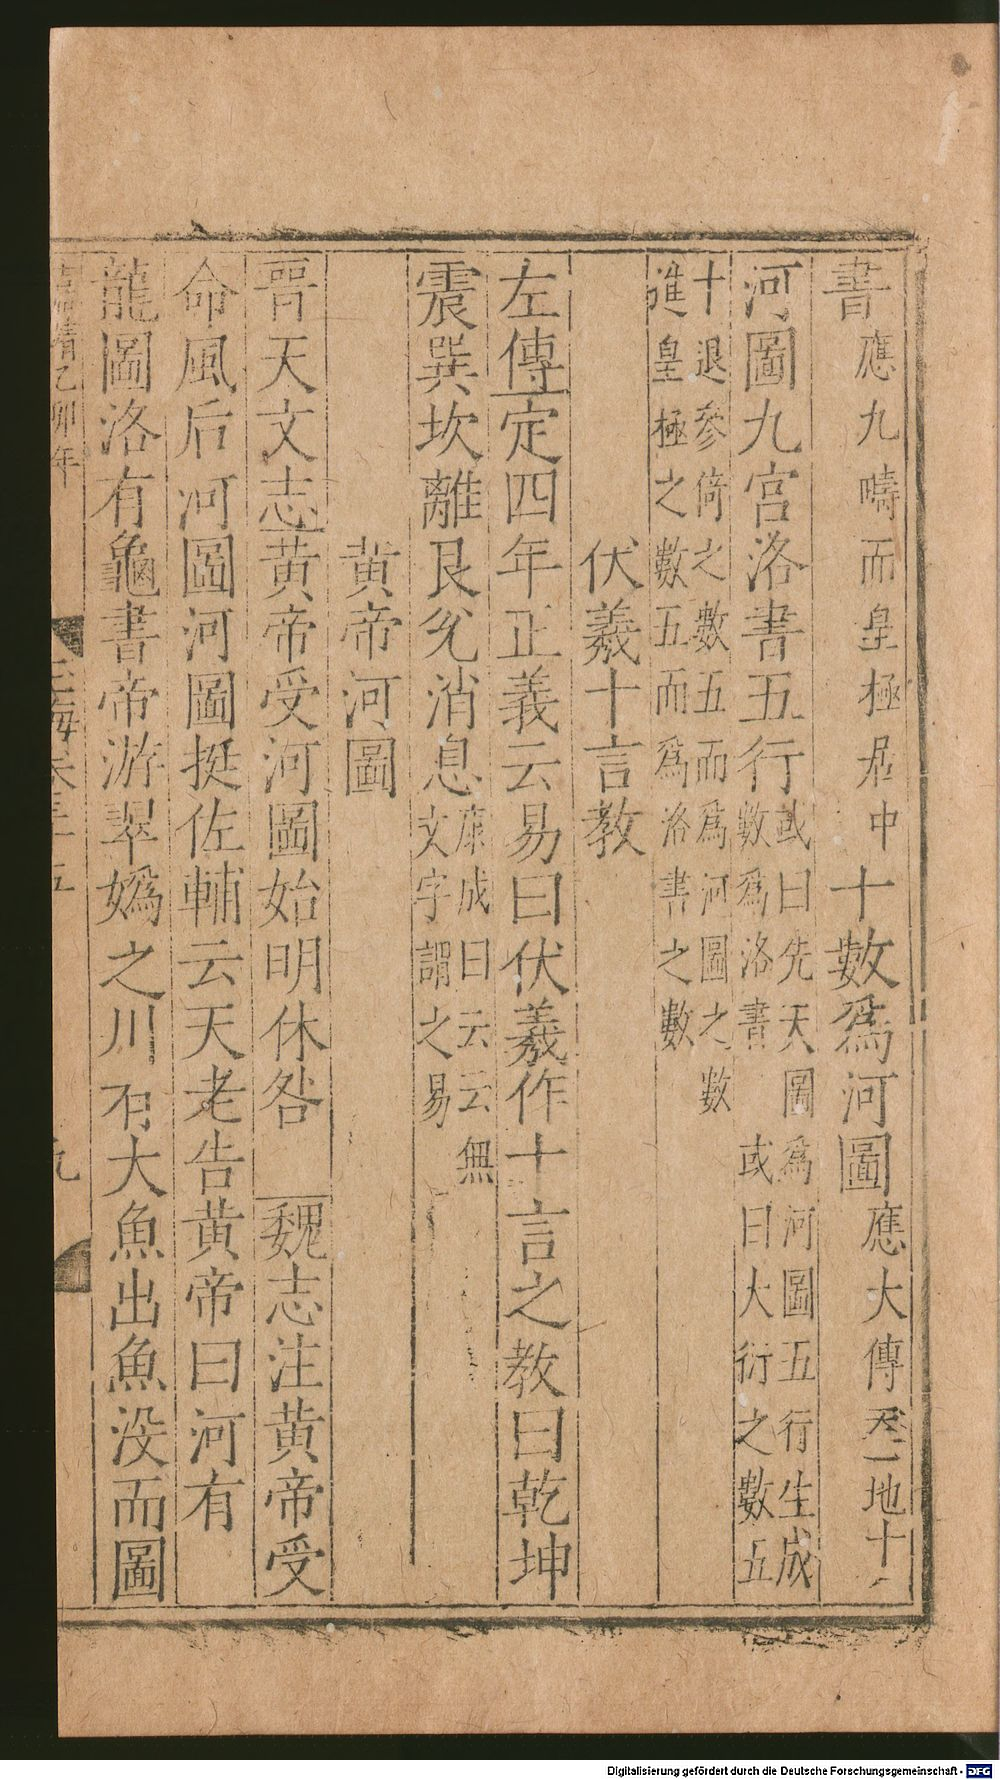 書應九疇而皇極居中十數爲河圖應大傳天一地十
河圖九宮洛書五行或曰先天圖爲河圖五行生成數爲洛書 或曰大衍之數五
十退參倚之數五而爲河圖之數進皇極之數五而爲洛書之數
伏羲十言教
左傳定四年正義云易曰伏羲作十言之教曰乾坤
震巽坎離艮兊消息康成曰云云無文字謂之易
黃帝河圖
晉天文志黃帝受河圖始明休咎 魏志注黃帝受
命風后河圖河圖挺佐輔云天老告黃帝曰河有
龍圖洛有龜書帝游翠嬀之川有大魚出魚没而圖
靖乙卯年
玉海卷三十五
九
Digitalisierung gefördert durch die Deutsche Forschungsgemeinschaft - DFG